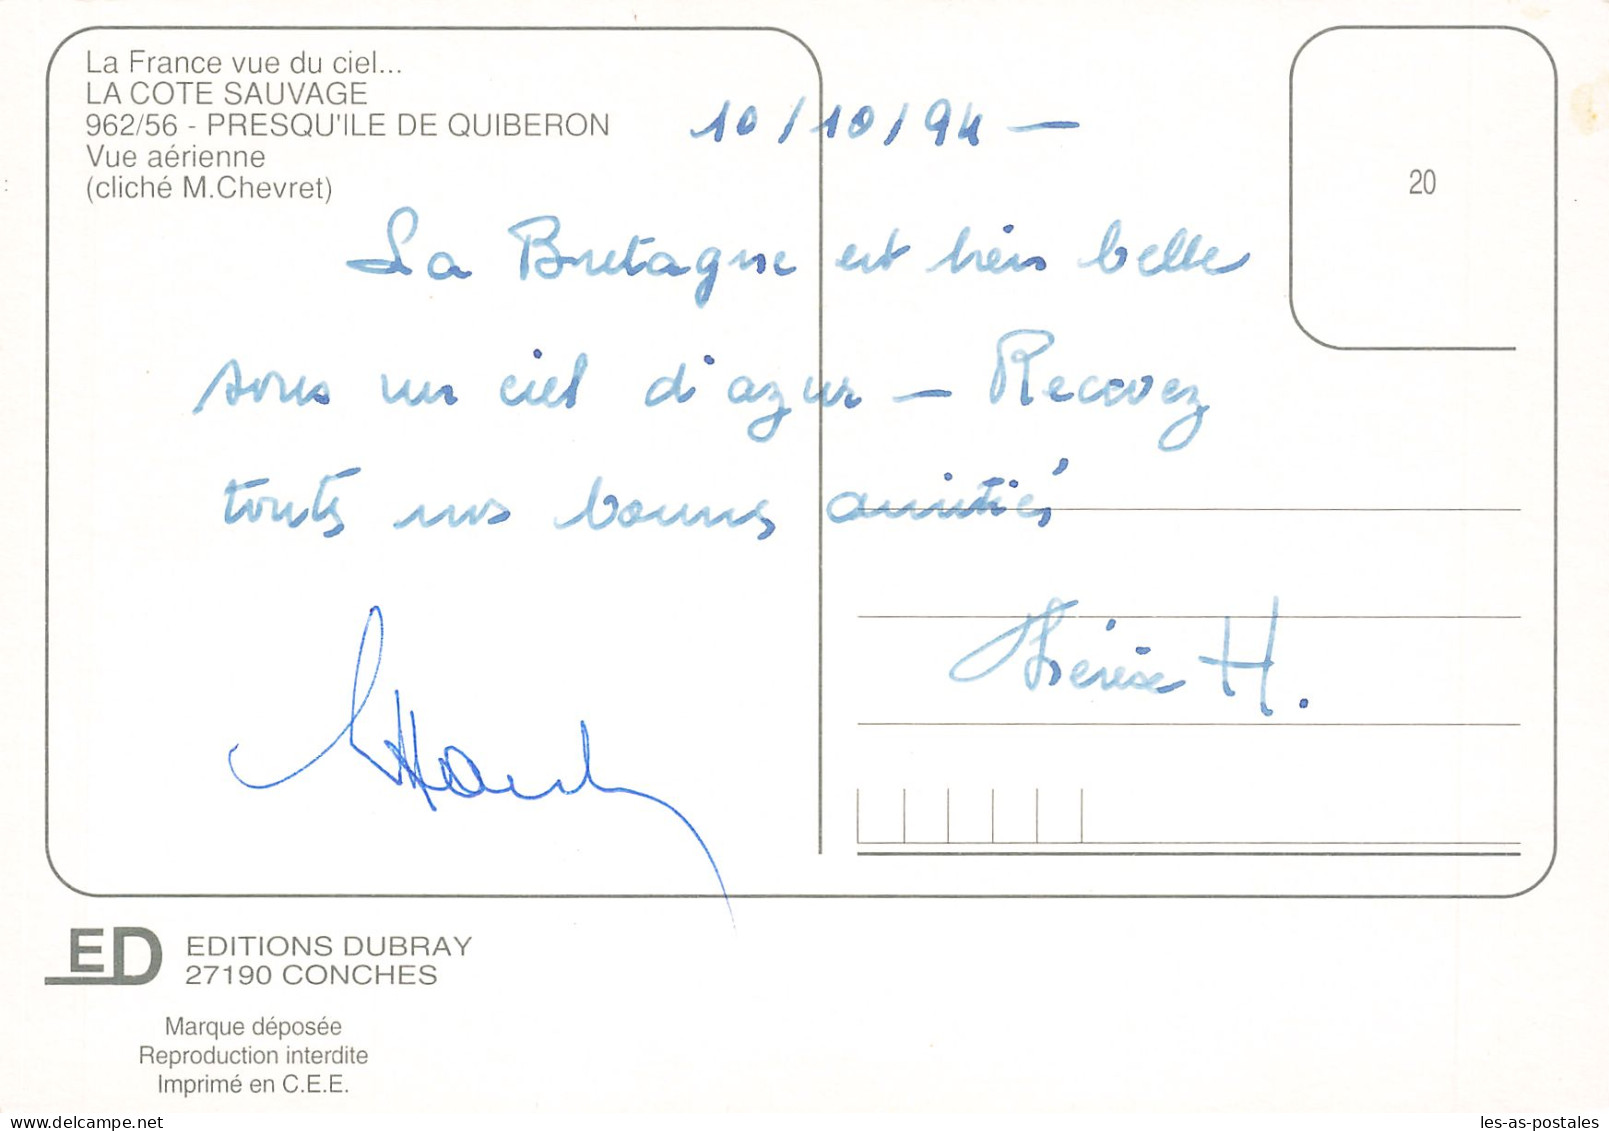 La France vue du ciel...
LA COTE SAUVAGE
962/56 - PRESQU'ILE DE QUIBERON
Vue aérienne
(cliché M.Chevret)
10/10/94 —
20
La Bretagne est très belle
sous un ciel d'azur — Recevez
toutes nos bonnes amitiés
Thérèse H.
ED
EDITIONS DUBRAY
27190 CONCHES
Marque déposée
Reproduction interdite
Imprimé en C.E.E.
les-as-postales